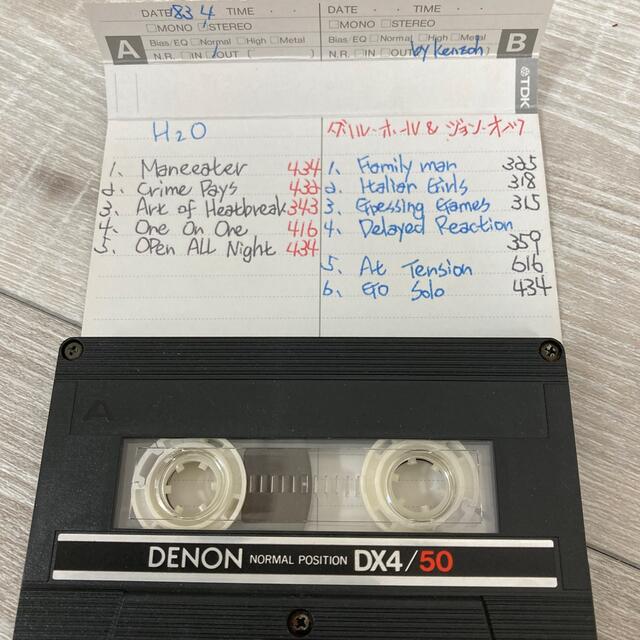 DATE '83 4 TIME · · DATE · · TIME · ·
□MONO □STEREO □MONO □STEREO
A Bias/EQ □Normal □High □Metal Bias/EQ □Normal □High □Metal B
N.R. □IN □OUT ( ) N.R. □IN □OUT by Kenzoh
TDK
H2O ダリル・ホール & ジョン・オーツ
1. Maneeater 434
2. Crime Pays 432
3. Art of Heatbreak 343
4. One On One 416
5. OPen All Night 434
1. Family man 325
2. Italian Girls 318
3. Guessing Games 315
4. Delayed Reaction
359
5. At Tension 616
6. Go Solo 434
A
DENON NORMAL POSITION DX4/50